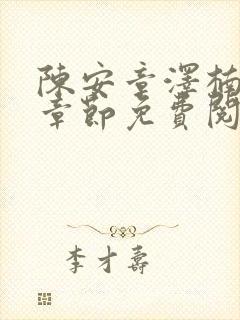 陳安童澤楠
章節免費閱
李才壽